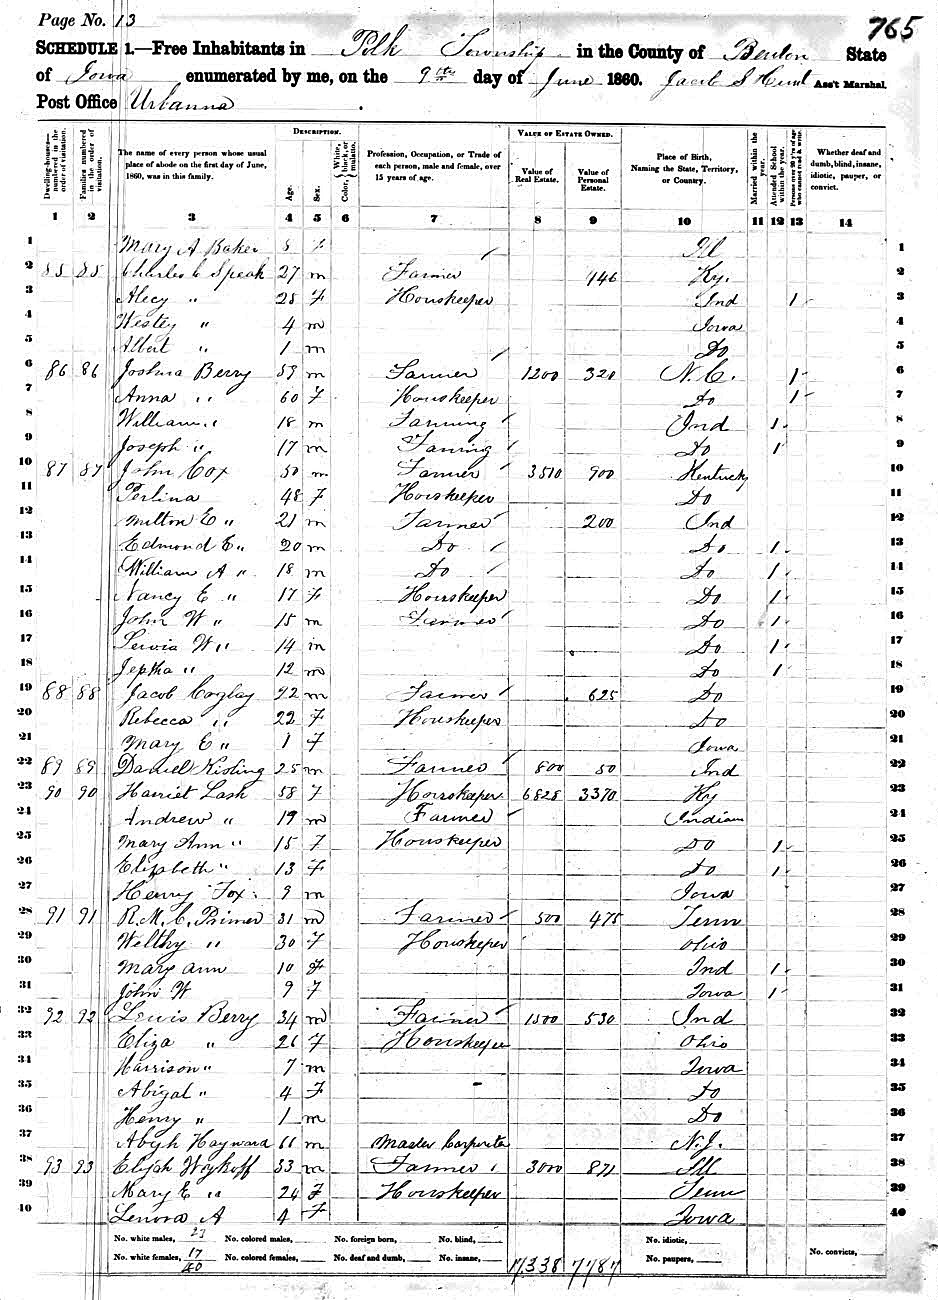 Page No. 13
765
SCHEDULE 1.—Free Inhabitants in Polk Township in the County of Benton State
of Iowa enumerated by me, on the 9th day of June 1860. Jacob S Hunt Ass't Marshal.
Post Office Urbanna
Dwelling-houses—numbered in the order of visitation. Families numbered in the order of visitation. The name of every person whose usual place of abode on the first day of June, 1860, was in this family. DESCRIPTION. Age. Sex. Color, White, black, or mulatto. Profession, Occupation, or Trade of each person, male and female, over 15 years of age. VALUE OF ESTATE OWNED. Value of Real Estate. Value of Personal Estate. Place of Birth, Naming the State, Territory, or Country. Married within the year. Attended School within the year. Persons over 20 y'rs of age who cannot read & write. Whether deaf and dumb, blind, insane, idiotic, pauper, or convict.
1 2 3 4 5 6 7 8 9 10 11 12 13 14
1 Mary A Baker 8 F Ill 1
2 85 85 Charles C Speak 27 m Farmer 446 Ky. 2
3 Alecy " 28 F Houskeeper Ind 1 3
4 Westey " 4 m Iowa 4
5 Albert " 1 m Do 5
6 86 86 Joshua Berry 59 m Farmer 1200 320 N.C. 1 6
7 Anna " 60 F Houskeeper Do 1 7
8 William " 18 m Farming Ind 1 8
9 Joseph " 17 m Faming Do 1 9
10 87 87 John Cox 50 m Farmer 3510 900 Kentucky 10
11 Perlina 48 F Houskeeper Do 11
12 Milton E " 21 m Farmer 200 Ind 12
13 Edmond E " 20 m Do Do 1 13
14 William A " 18 m Do Do 1 14
15 Nancy E " 17 F Houskeeper Do 1 15
16 John W " 15 m Farmer Do 1 16
17 Lewis W " 14 m Do 1 17
18 Jeptha " 12 m Do 1 18
19 88 88 Jacob Cozlay 22 m Farmer 625 Do 19
20 Rebecca " 22 F Houskeeper Do 20
21 Mary E " 1 F Iowa 21
22 89 89 Daniel Kisling 25 m Farmer 800 50 Ind 22
23 90 90 Harriet Lash 58 F Houskeeper 6828 3370 Ky 23
24 Andrew " 19 m Farmer Indiana 24
25 Mary Ann " 15 F Houskeeper Do 1 25
26 Elizabeth " 13 F Do 1 26
27 Henry Fox 9 m Iowa 27
28 91 91 R.M.C. Primer 31 m Farmer 500 475 Tenn 28
29 Welthy " 30 F Houskeeper Ohio 29
30 Mary Ann 10 F Ind 1 30
31 John W 9 F Iowa 1 31
32 92 92 Lewis Berry 34 m Farmer 1500 530 Ind 32
33 Eliza " 26 F Houskeeper Ohio 33
34 Harrison " 7 m Iowa 34
35 Abigal " 4 F Do 35
36 Henry " 1 m Do 36
37 Abijh Hayward 66 m Master Carpenter N.J. 37
38 93 93 Elijah Wyckoff 33 m Farmer 3000 871 Ill 38
39 Mary E " 24 F Houskeeper Tenn 39
40 Lenora A 4 F Iowa 40
No. white males, 23 No. colored males, No. foreign born, No. blind, No. idiotic,
No. white females, 17 No. colored females, No. deaf and dumb, No. insane, 17,338 7787 No. paupers, No. convicts,
40